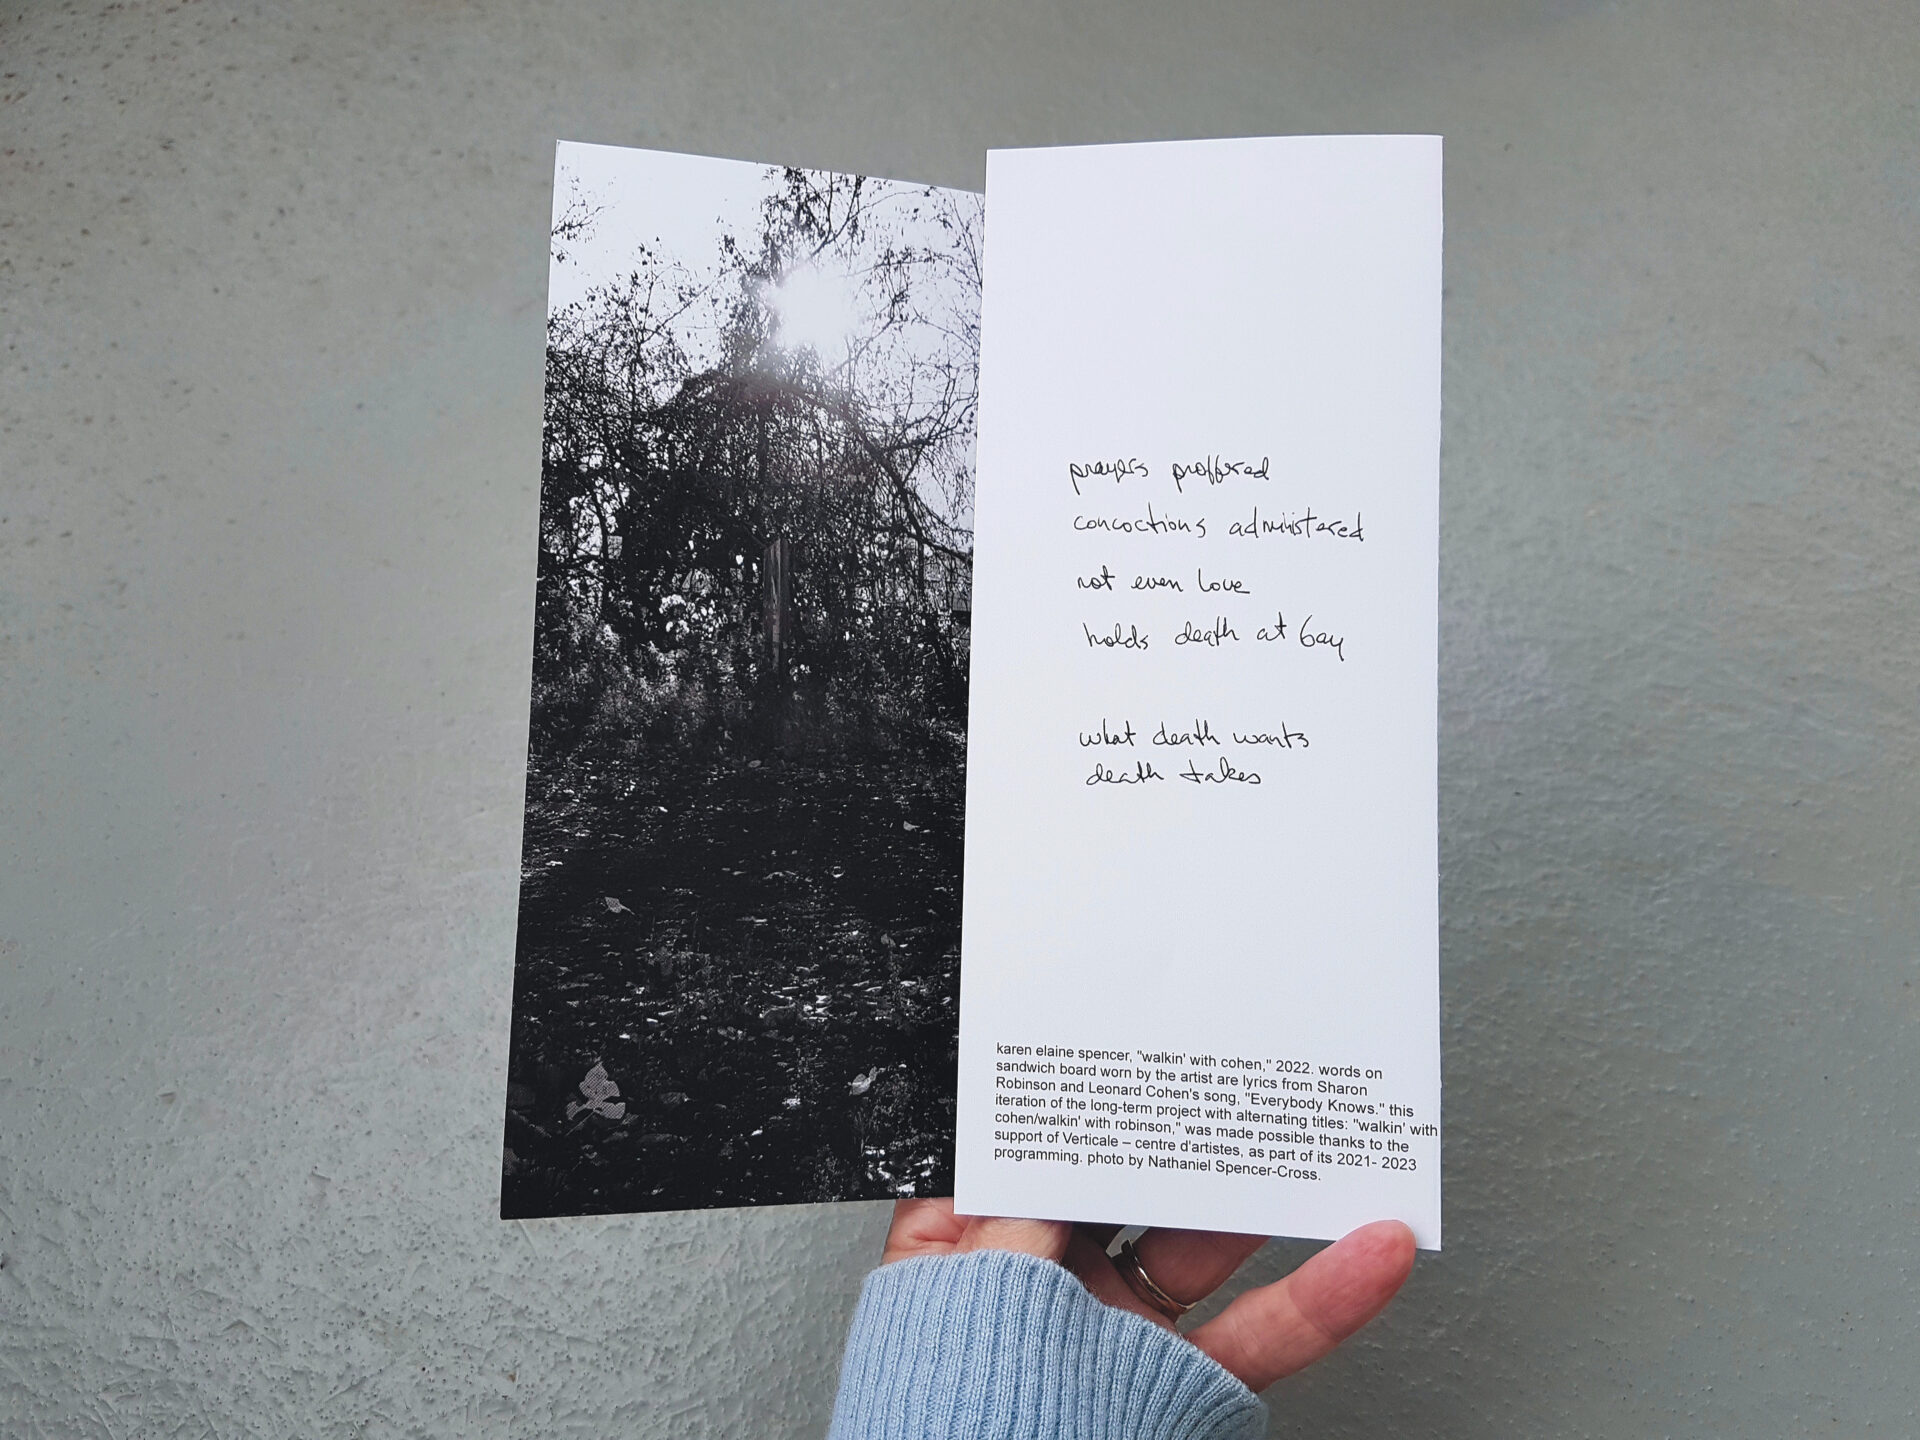 prayers proffered
concoctions administered
not even love
holds death at bay
what death wants
death takes
karen elaine spencer, "walkin' with cohen," 2022. words on
sandwich board worn by the artist are lyrics from Sharon
Robinson and Leonard Cohen's song, "Everybody Knows." this
iteration of the long-term project with alternating titles: "walkin' with
cohen/walkin' with robinson," was made possible thanks to the
support of Verticale – centre d'artistes, as part of its 2021- 2023
programming. photo by Nathaniel Spencer-Cross.